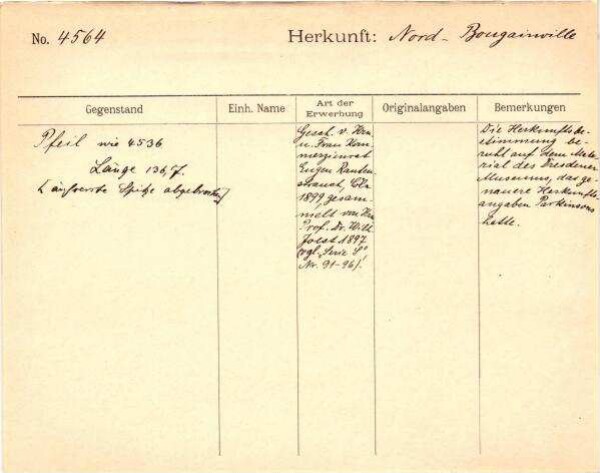 No. 4564
Herkunft: Nord-Bougainville
Gegenstand
Einh. Name
Art der Erwerbung
Originalangaben
Bemerkungen
Pfeil wie 4536
Länge 136,7.
[äusserste Spitze abgebrochen]
Gesch. v. Hrn
u. Frau Kom-
merzienrat
Eugen Rauten-
strauch, Cöln
1899, gesam-
melt von Hrn
Prof. Dr. Wilh.
Joest 1897
(vgl. Serie "S"
Nr. 91-96).
Die Herkunftsbe-
stimmung be-
ruht auf dem Mate-
rial des Dresdener
Museums, das ge-
nauere Herkunfts-
angaben Parkinsons
hatte.